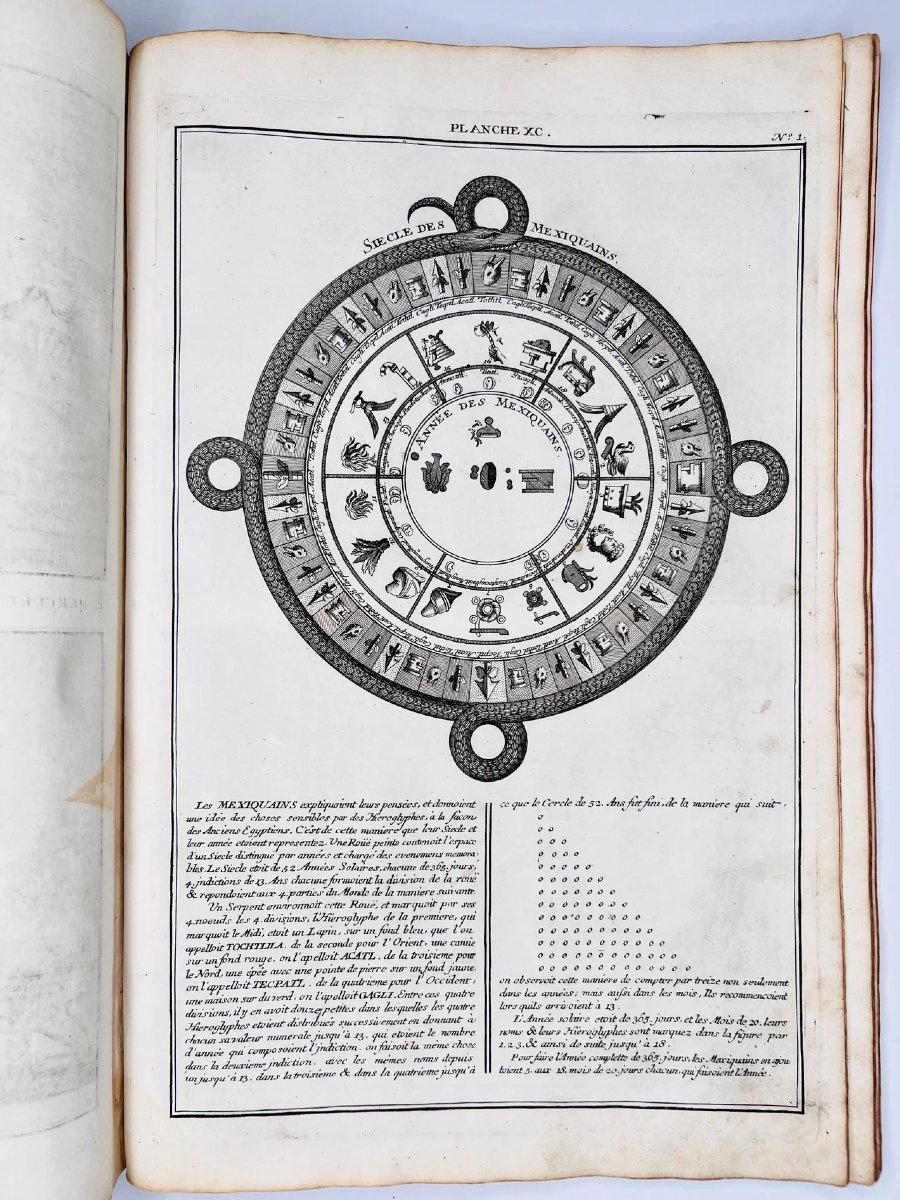 PLANCHE XC.
N.º 1.
SIECLE DES MEXIQUAINS
ANNÉE DES MEXIQUAINS
Les MEXIQUAINS expliquoient leurs pensées, et donnoient
une idée des choses sensibles par des Hieroglyphes, à la façon
des Anciens Egyptiens. C'est de cette maniere que leur Siecle et
leur année etoient representez. Une Roüe peinte contenoit l'espace
d'un Siecle distingué par années et chargé des evenemens memora
bles. Le Siecle etoit de 52. Années Solaires, chacune de 365. jours,
4. jndictions de 13. Ans chacune formoient la division de la roüe
& repondoient aux 4. parties du Monde de la maniere suivante.
Un Serpent environnoit cette Rouë, et marquoit par ses
4. noeuds les 4. divisions, l'Hieroglyphe de la premiere, qui
marquoit le Midi, etoit un Lapin, sur un fond bleu, que l'on
appelloit TOCHTILI. de la seconde pour l'Orient, une canne
sur un fond rouge, on l'apelloit ACATL. de la troisieme pour
le Nord, une épée avec une pointe de pierre sur un fond jaune,
on l'apelloit TECPATL. de la quatrieme pour l'Occident,
une maison sur du verd, on l'apelloit CAGLI. Entre ces quatre
divisions, il y en avoit douze petites dans lesquelles les quatre
Hieroglyphes etoient distribués successivement en donnant à
chacun sa valeur numerale jusqu'à 13. qui etoient le nombre
d'année qui composoient l'jndiction. on faisoit la même chose
dans la deuxieme jndiction. avec les mêmes noms depuis
un jusqu'à 13. dans la troisieme & dans la quatrieme jusqu'à
ce que le Cercle de 52. Ans fut fini, de la maniere qui suit,
o
o o
o o o
o o o o
o o o o o
o o o o o o
o o o o o o o
o o o o o o o o
o o o o o o o o o
o o o o o o o o o o
o o o o o o o o o o o
o o o o o o o o o o o o
o o o o o o o o o o o o o
on observoit cette maniere de compter par treize non seulement
dans les années; mais aussi dans les mois, Ils recommencoient
lors qu'ils arrivoient à 13.
L'Année solaire etoit de 365. jours, et les Mois de 20. leurs
noms & leurs Hieroglyphes sont marquez dans la figure par
1. 2. 3. & ainsi de suite jusqu'à 18.
Pour faire l'Année complette de 365. jours, les Mexiquains en ajou
toient 5. aux 18. mois de 20. jours chacun, qui faisoient l'Année.
MERCURE